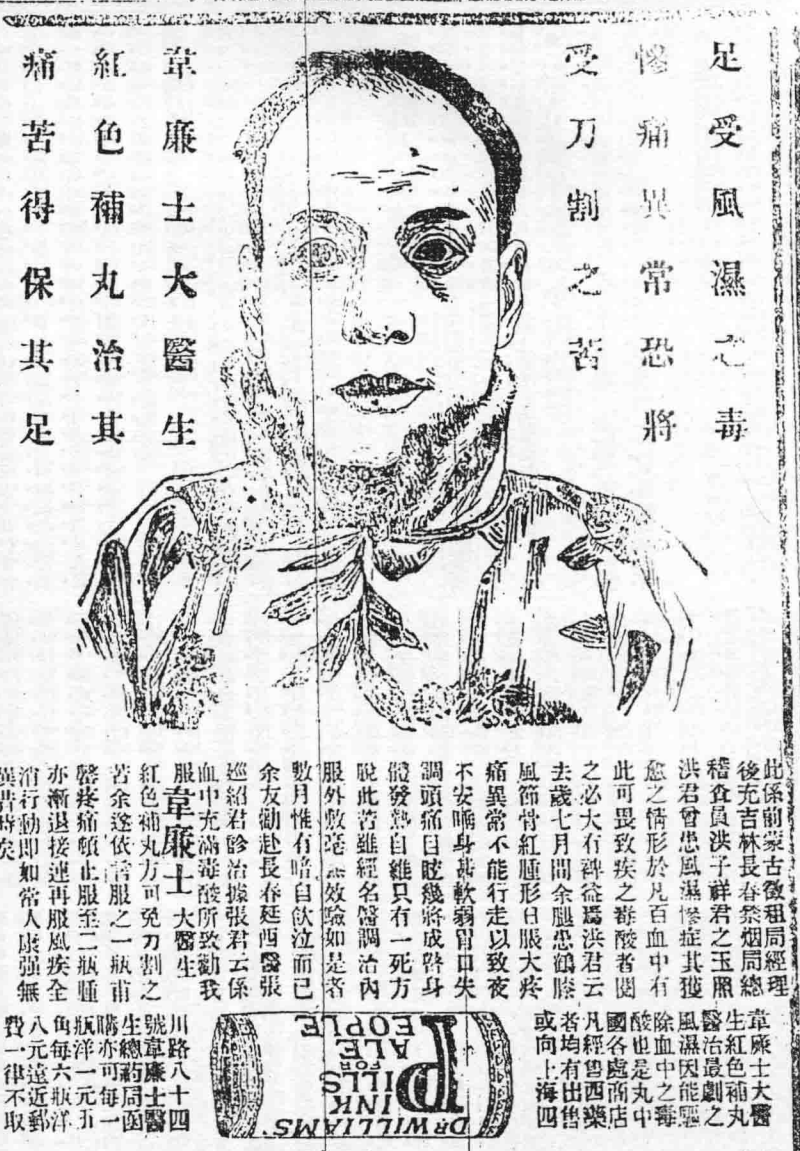 足受風濕之毒
慘痛異常恐將
受刀割之苦
韋廉士大醫生
紅色補丸治其
痛苦得保其足
此係前蒙古徵租局經理
後充吉林長春禁烟局總
稽查員洪子祥君之玉照
洪君曾患風濕慘症其獲
愈之情形於凡百血中有
此可畏致疾之毒酸者閱
之必大有裨益焉洪君云
去歲七月間余腿患鶴膝
風節骨紅腫形日脹大疼
痛異常不能行走以致夜
不安喘身甚軟弱胃口失
調頭痛目眩幾將成癆身
體發熱自維只有一死方
脫此苦雖經名醫調治內
服外敷毫無效驗如是者
數月惟有暗自飲泣而已
余友勸赴長春延西醫張
巡紹君診治據張君云係
血中充滿毒酸所致勸我
服韋廉士大醫生
紅色補丸方可免刀割之
苦余遂依言服之一瓶甫
罄疼痛頓止服至二瓶腫
亦漸退接連再服風疾全
消行動即如常人康强無
異昔時矣
韋廉士大醫
生紅色補丸
醫治最劇之
風濕因能驅
除血中之毒
酸也是丸中
國各處商店
凡經售西藥
者均有出售
或向上海四
DR WILLIAMS'
PINK
PILLS
FOR
PALE
PEOPLE
川路八十四
號韋廉士醫
生總藥局函
購亦可每一
瓶洋一元五
角每六瓶洋
八元遠近郵
費一律不取